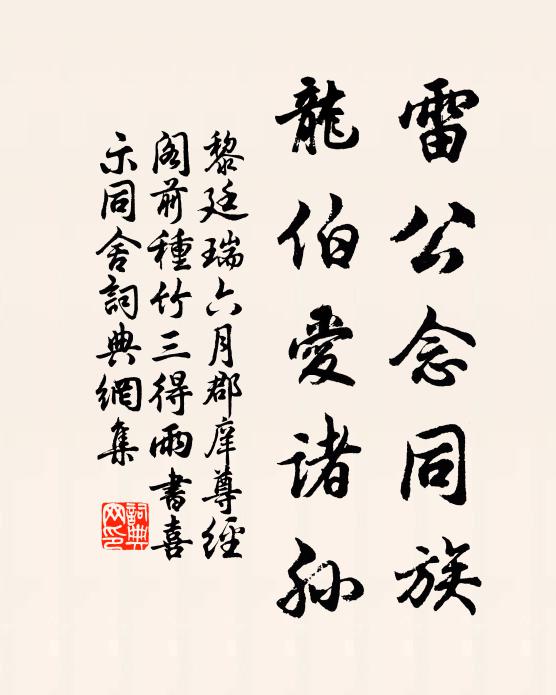 雷公念同族
龍伯愛諸孫
黎廷瑞六月郡庠尊經
閣前種竹三得雨書喜
示同舍詞典網集
詞典網印